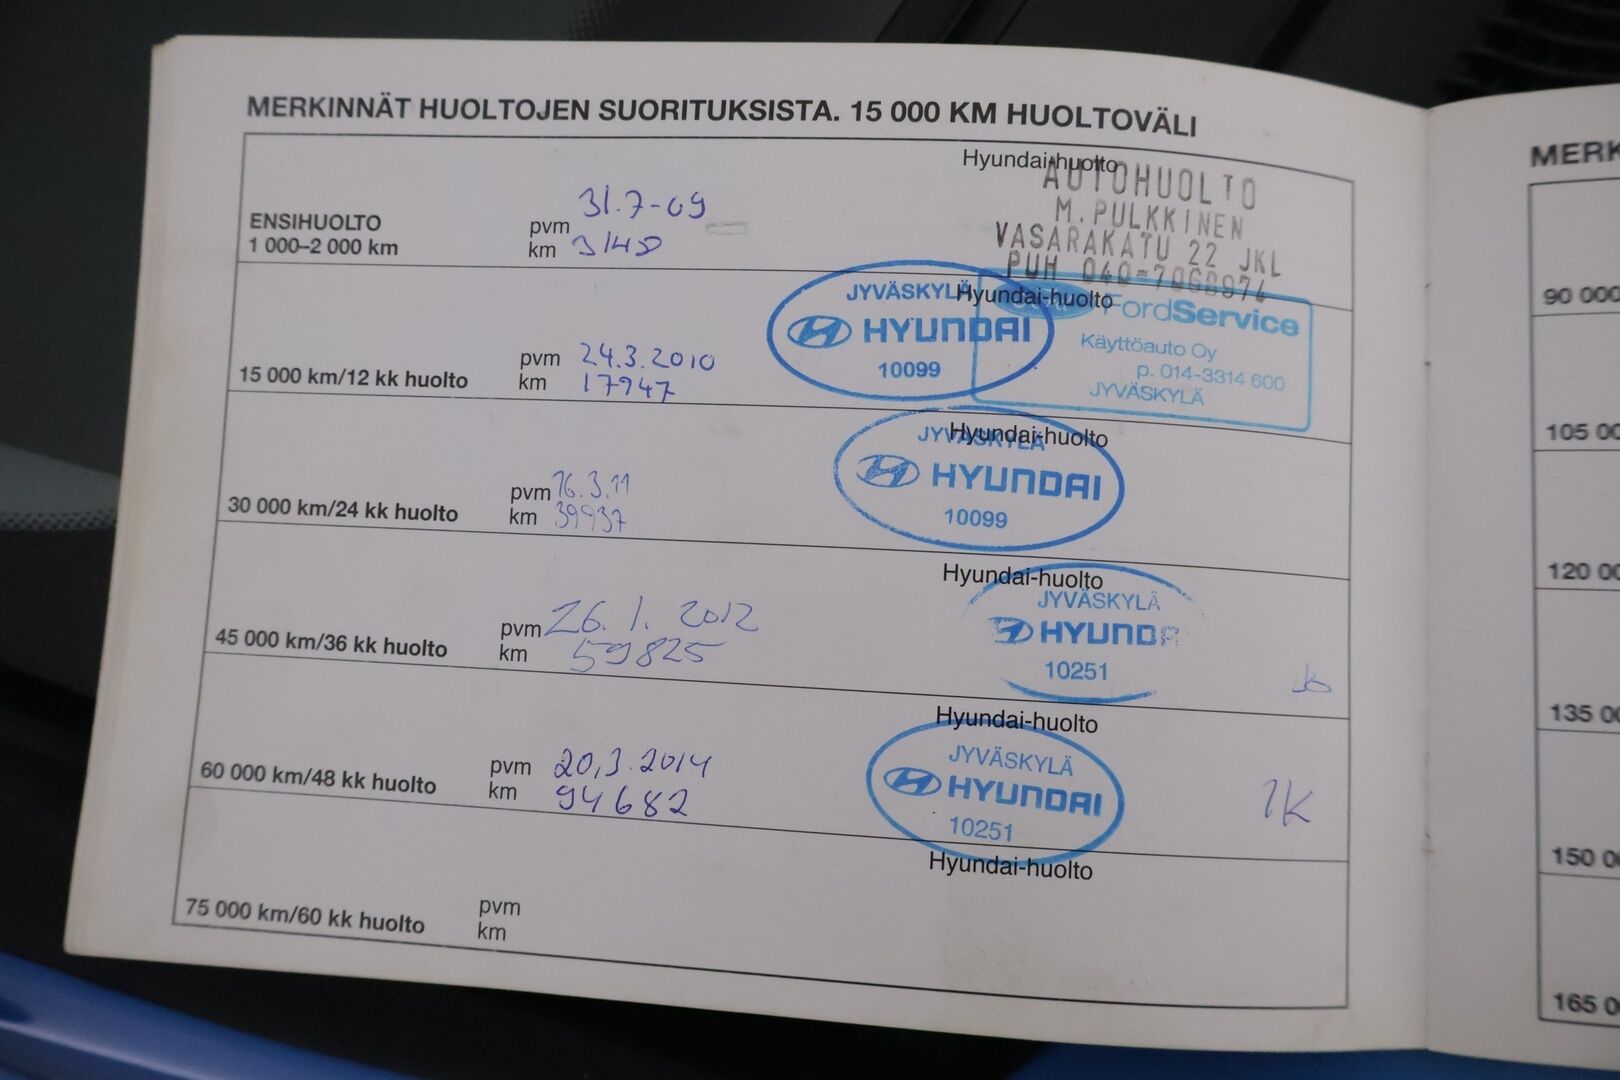 MERKINNÄT HUOLTOJEN SUORITUKSISTA. 15 000 KM HUOLTOVÄLI
Hyundai-huolto
AUTOHUOLTO
M. PULKKINEN
VASARAKATU 22 JKL
PUH 040-7068974
ENSIHUOLTO
1 000–2 000 km
pvm 31.7-09
km 3140
Hyundai-huolto
JYVÄSKYLÄ
HYUNDAI
10099
FordService
Käyttöauto Oy
p. 014-3314 600
JYVÄSKYLÄ
15 000 km/12 kk huolto
pvm 24.3.2010
km 17947
Hyundai-huolto
JYVÄSKYLÄ
HYUNDAI
10099
30 000 km/24 kk huolto
pvm 16.3.11
km 39937
Hyundai-huolto
JYVÄSKYLÄ
HYUNDA
10251
45 000 km/36 kk huolto
pvm 26.1.2012
km 59825
Hyundai-huolto
JYVÄSKYLÄ
HYUNDAI
10251
60 000 km/48 kk huolto
pvm 20.3.2014
km 94682
Hyundai-huolto
75 000 km/60 kk huolto
pvm
km
MERK
90 000
105 00
120 00
135 00
150 0
165 0